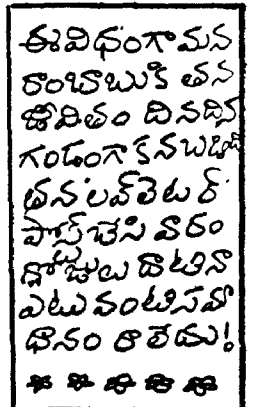 ఈ విధంగా మన
రాంబాబుకి తన
జీవితం దినదిన
గండంగా కనబడింది
తన లవ్ లెటర్
పోస్ట్ చేసి వారం
రోజులు దాటినా
ఎటువంటి సమా
ధానం రాలేదు!